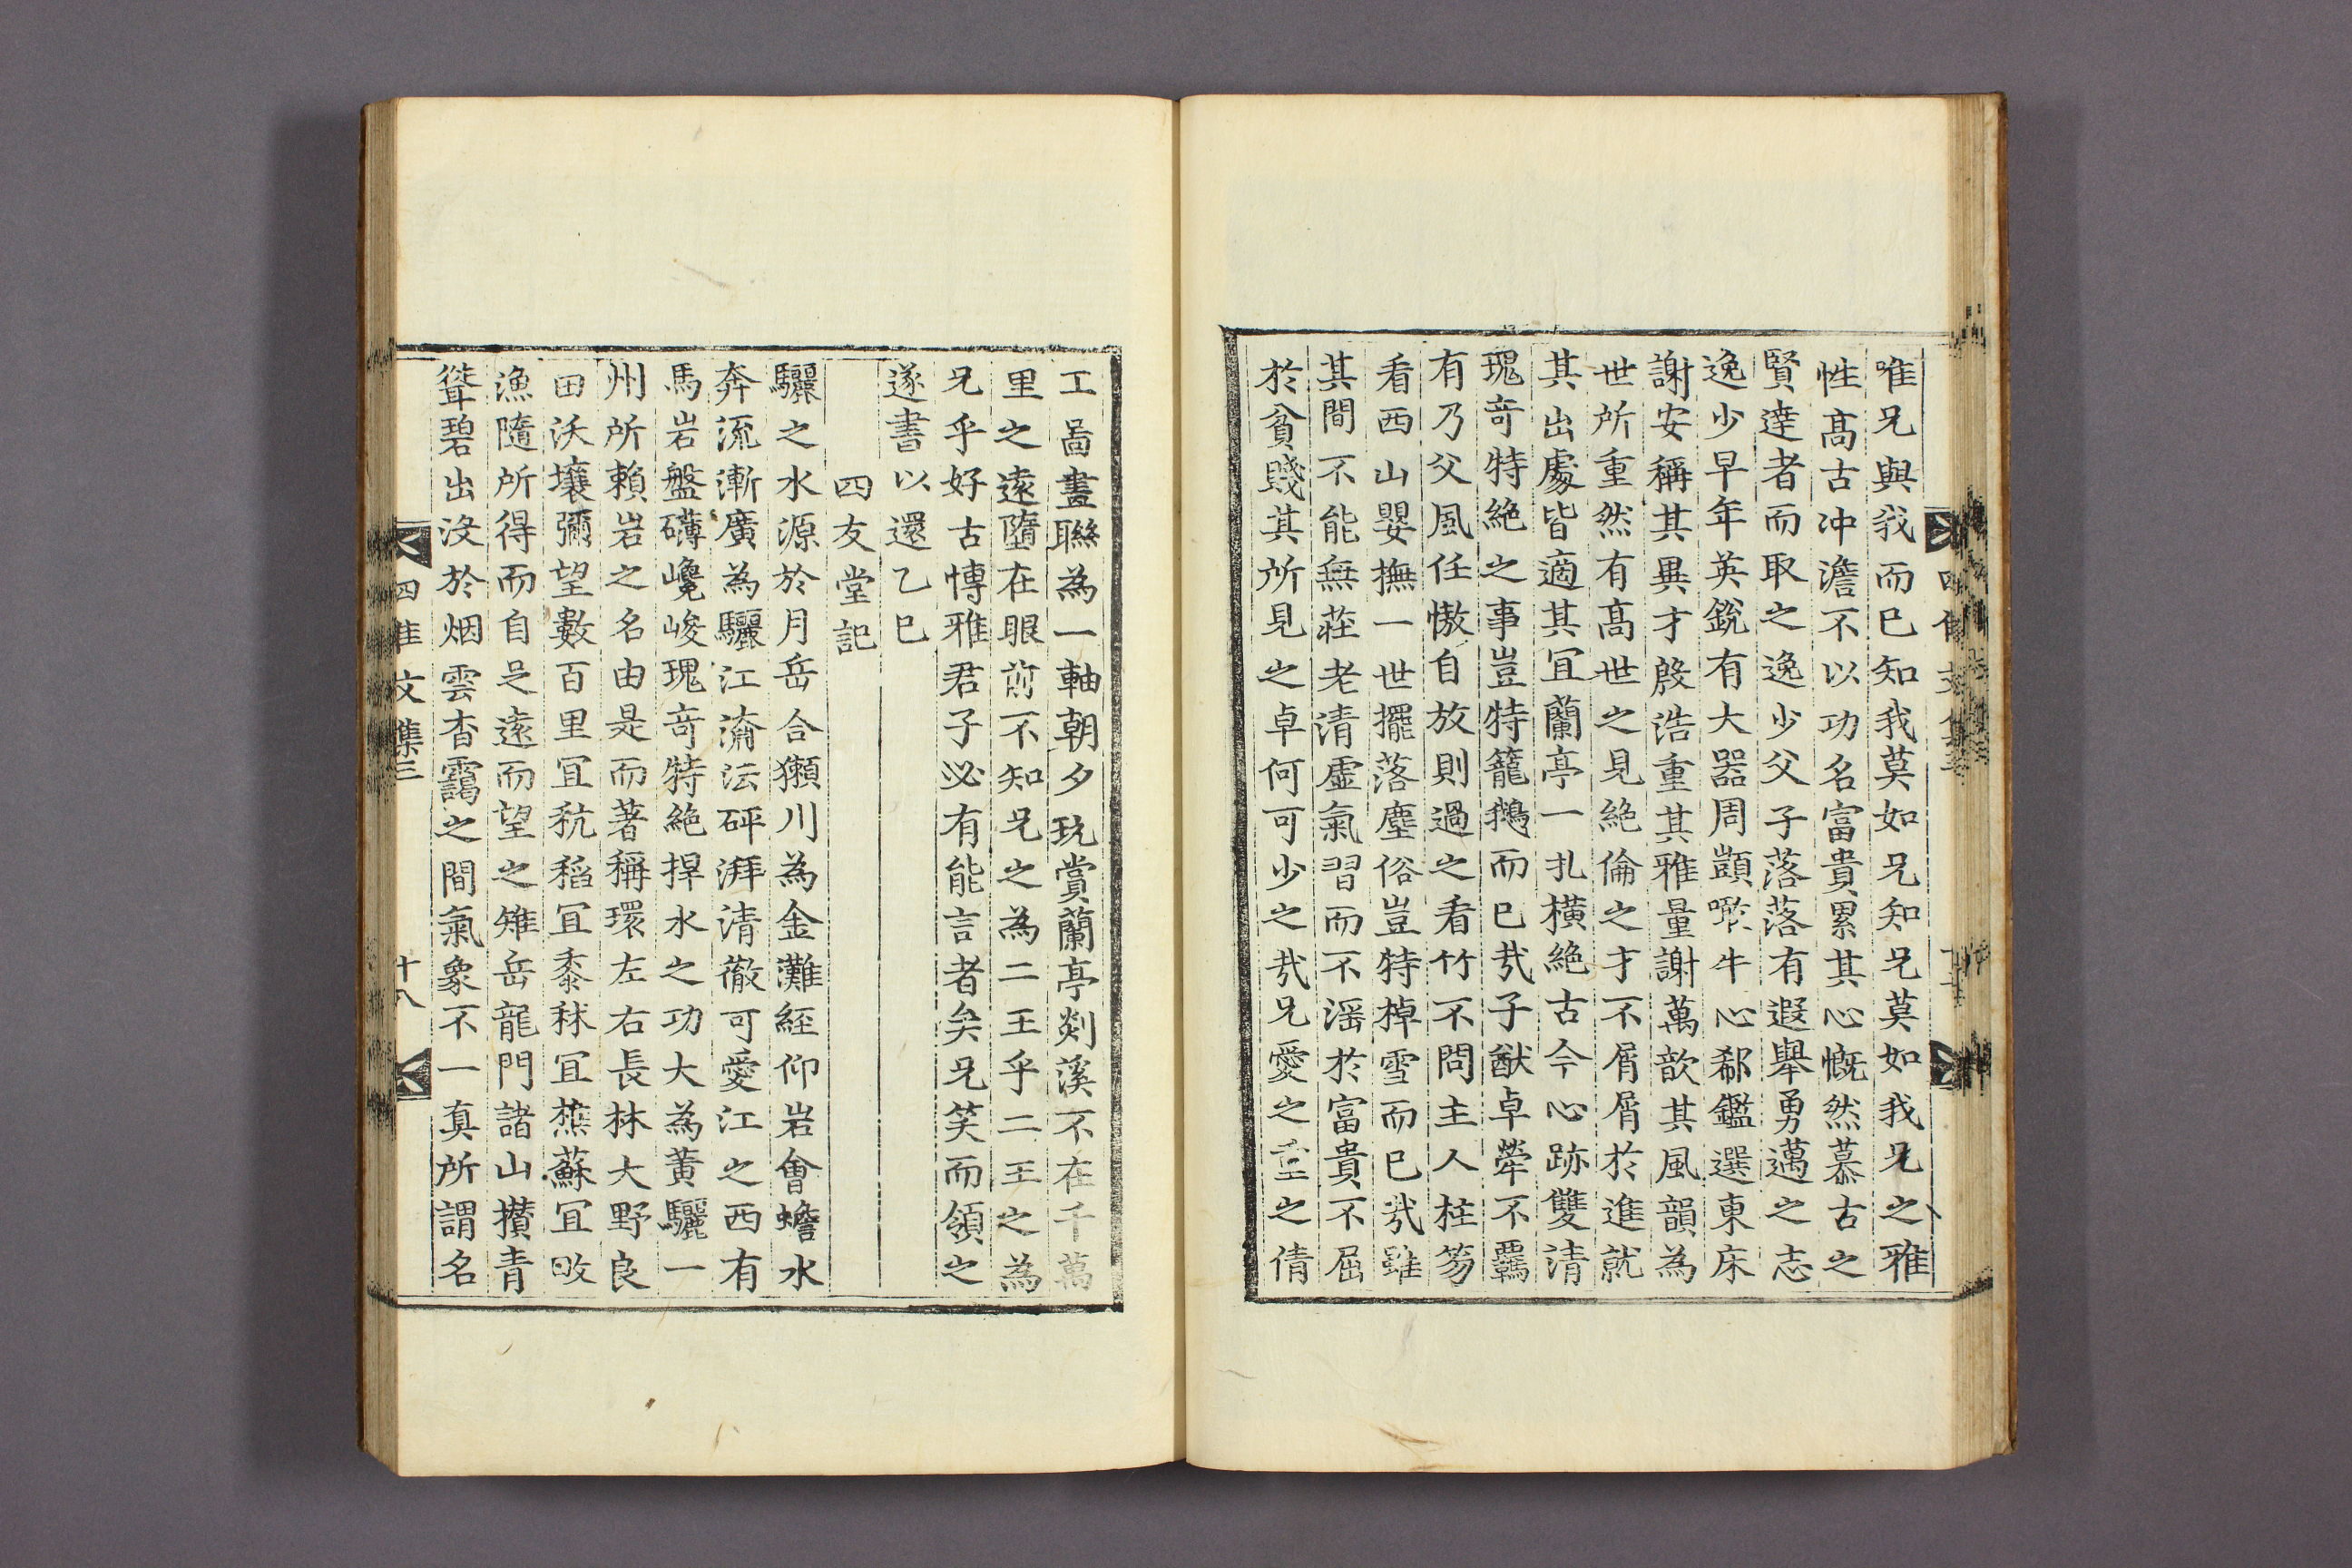 唯兄與我而已知我莫如兄知兄莫如我兄之雅
性高古冲澹不以功名富貴累其心慨然慕古之
賢達者而取之逸少父子落落有遐舉勇邁之志
逸少早年英銳有大器周顗啖牛心郗鑑選東床
謝安稱其異才殷浩重其雅量謝萬歆其風韻為
世所重然有高世之見絶倫之才不屑屑於進就
其出處皆適其冝蘭亭一扎橫絶古今心跡雙清
瑰奇特絶之事豈特籠鵝而已㦲子猷卓犖不羈
有乃父風任慠自放則過之看竹不問主人柱笏
看西山嬰撫一世擺落塵俗豈特棹雪而已㦲雖
其間不能無莊老清虛氣習而不滛於富貴不屈
於貧賤其所見之卓何可少之㦲兄愛之重之倩
工啚畫聯為一軸朝夕玩賞蘭亭剡溪不在千萬
里之遠墮在眼前不知兄之為二王乎二王之為
兄乎好古愽雅君子必有能言者矣兄笑而領之
遂書以還乙巳
四友堂記
驪之水源於月岳合獺川為金灘經仰岩會蟾水
奔流漸廣為驪江瀹沄砰湃清徹可愛江之西有
馬岩盤礴巉峻瑰奇特絶捍水之功大為黃驪一
州所賴岩之名由是而著稱環左右長林大野良
田沃壤彌望數百里冝秔稻冝黍秫冝樵蘇冝畋
漁隨所得而自足遠而望之雉岳龍門諸山攢青
聳碧出沒於烟雲杳靄之間氣象不一真所謂名
四佳文集三
十八